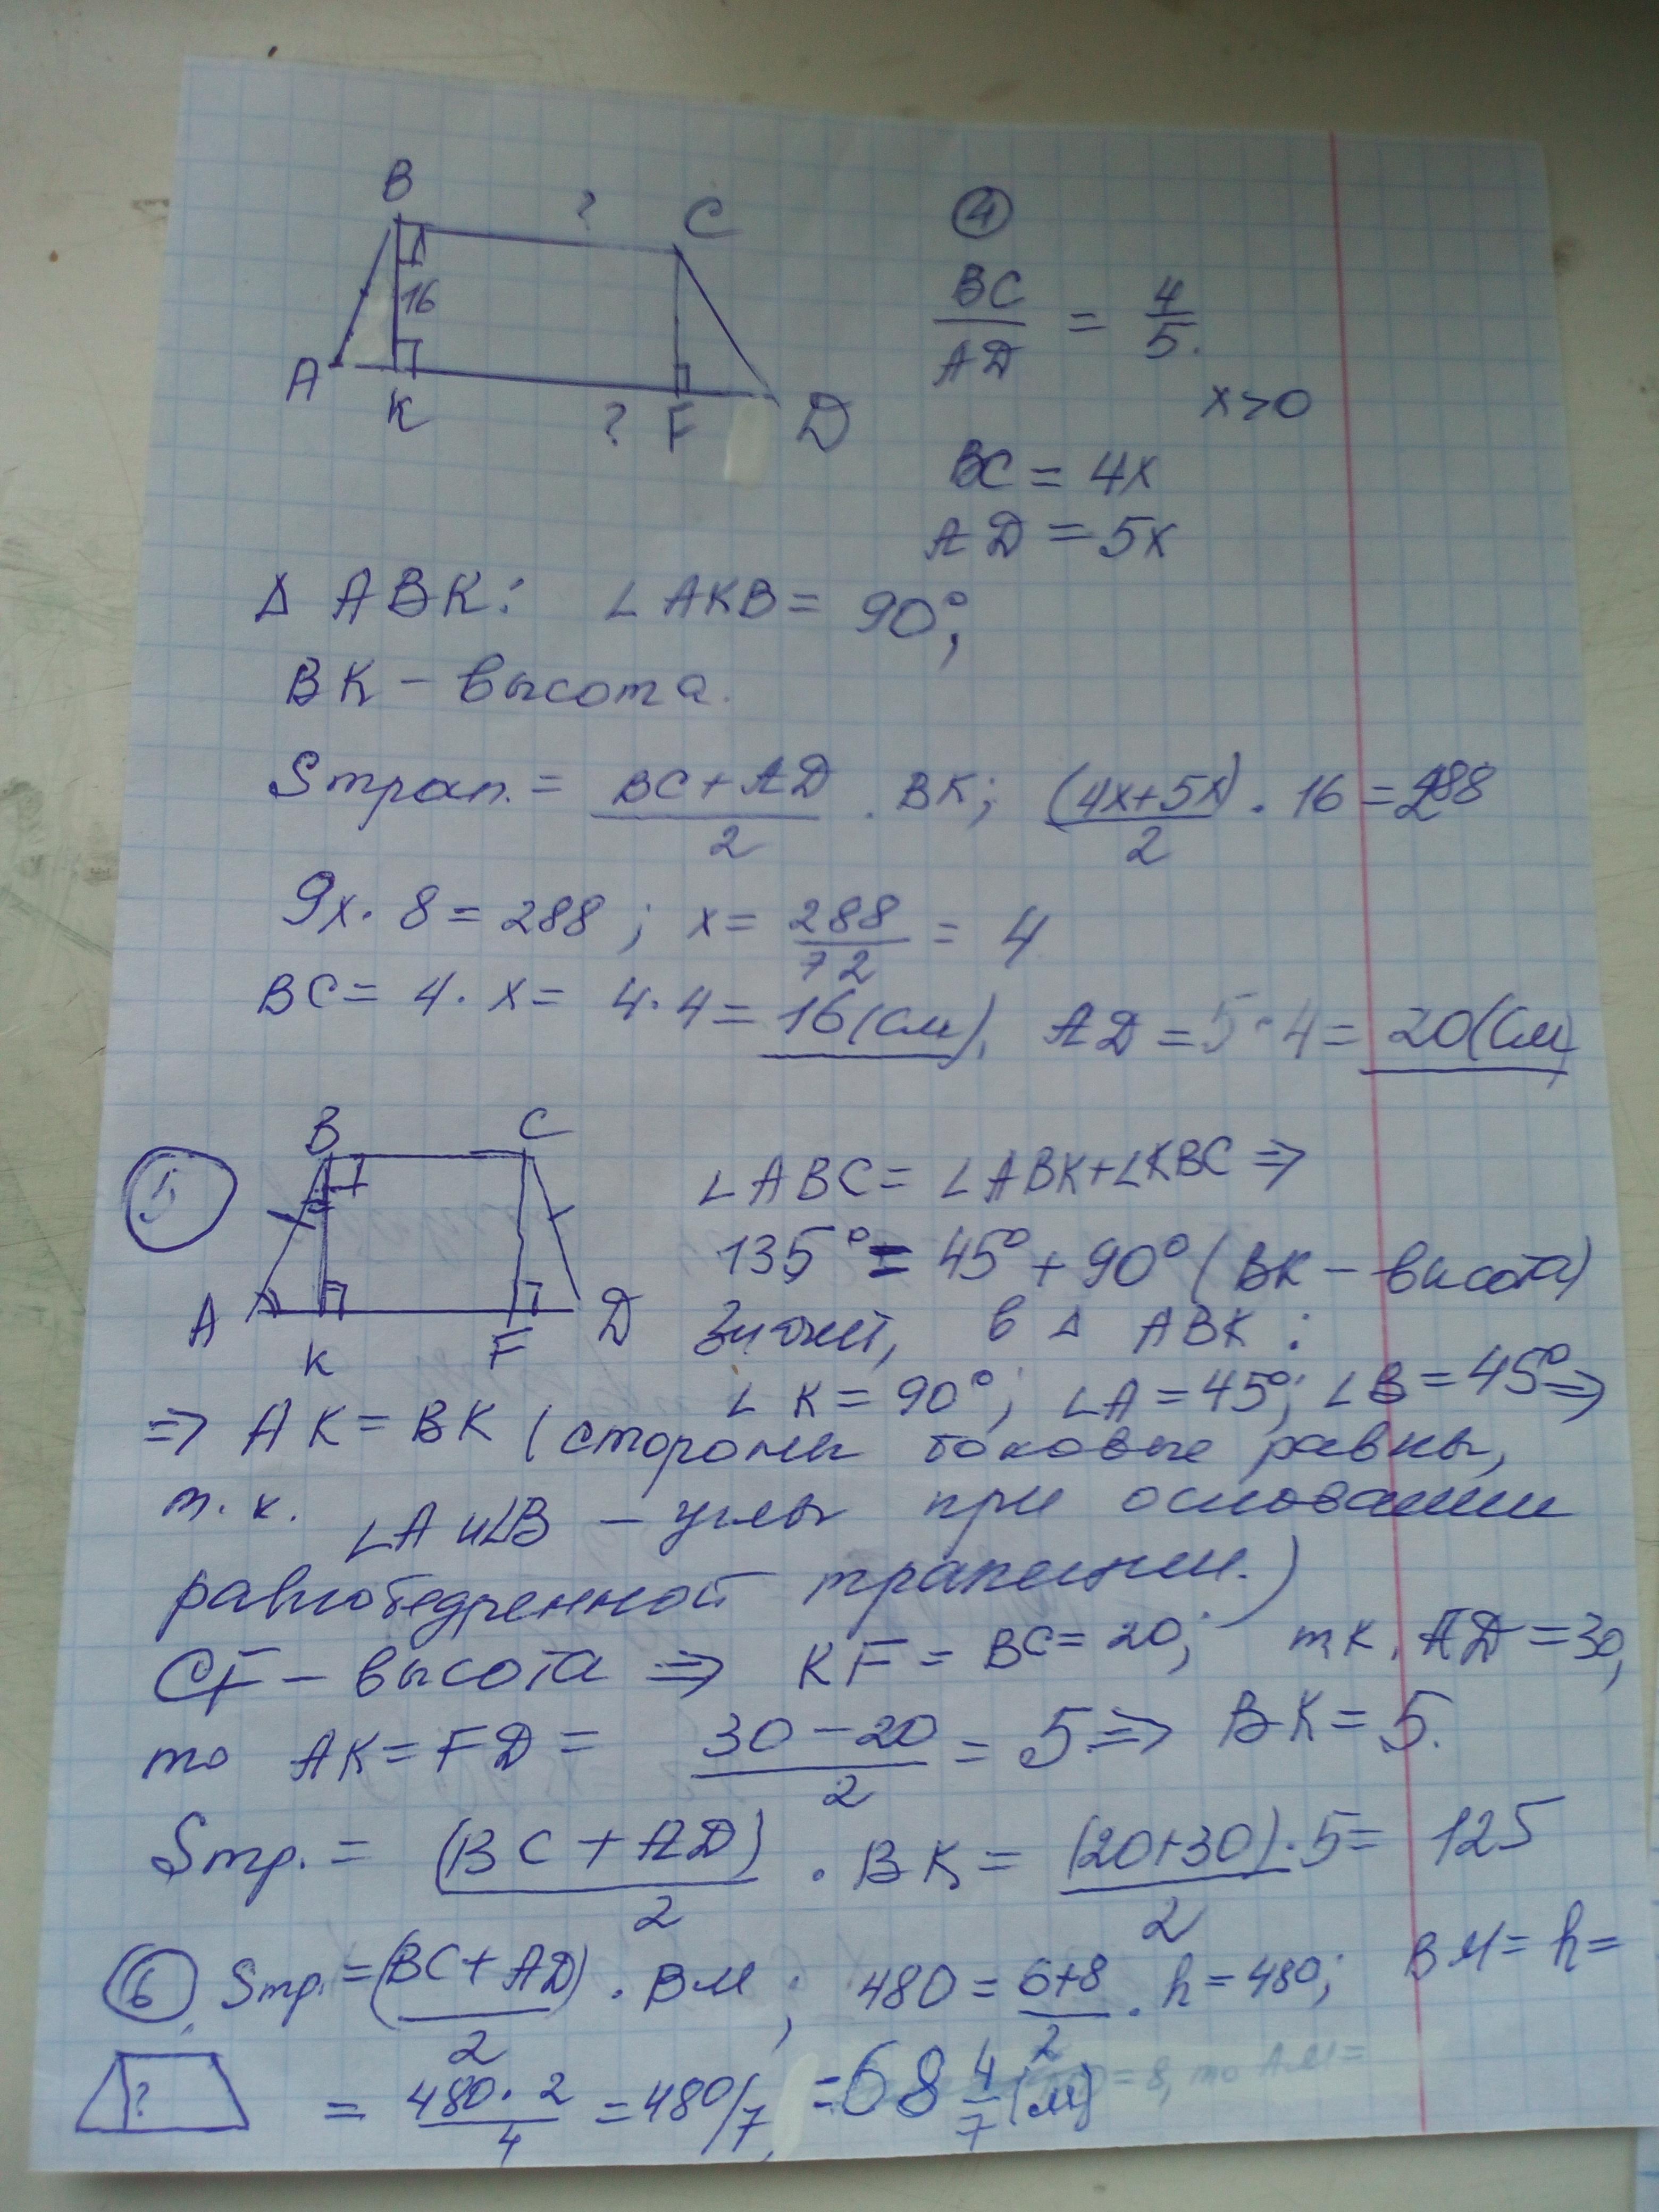 B ? C
16
A K ? F D
④
BC/AD = 4/5.
x>0
BC = 4x
AD = 5x
Δ ABK: ∠AKB = 90°;
BK – высота.
Sтрап. = (BC+AD)/2 . BK; (4x+5x)/2 . 16 = 288
9x. 8 = 288 ; x = 288/72 = 4
BC = 4. x = 4. 4 = 16 (см), AD = 5·4 = 20 (см)
⑤
B C
A K F D
∠ABC = ∠ABK+∠KBC ⇒
135° = 45° + 90° (BK – высота)
Значит, в Δ ABK:
∠K = 90°; ∠A = 45°; ∠B = 45° ⇒
⇒ AK = BK (стороны боковые равны,
т.к. ∠A и ∠B – углы при основании
равнобедренной трапеции.)
CF – высота ⇒ KF = BC = 20; т.к. AD = 30,
то AK = FD = (30–20)/2 = 5 ⇒ BK = 5.
Sтр. = (BC+AD)/2 . BK = (20+30)/2 . 5 = 125
⑥ Sтр. = (BC+AD)/2 . BM ; 480 = 6+8/2 . h = 480; BM = h =
?
= 480. 2/4 = 480/7 = 68 4/7 (м)
= 8, то AM =